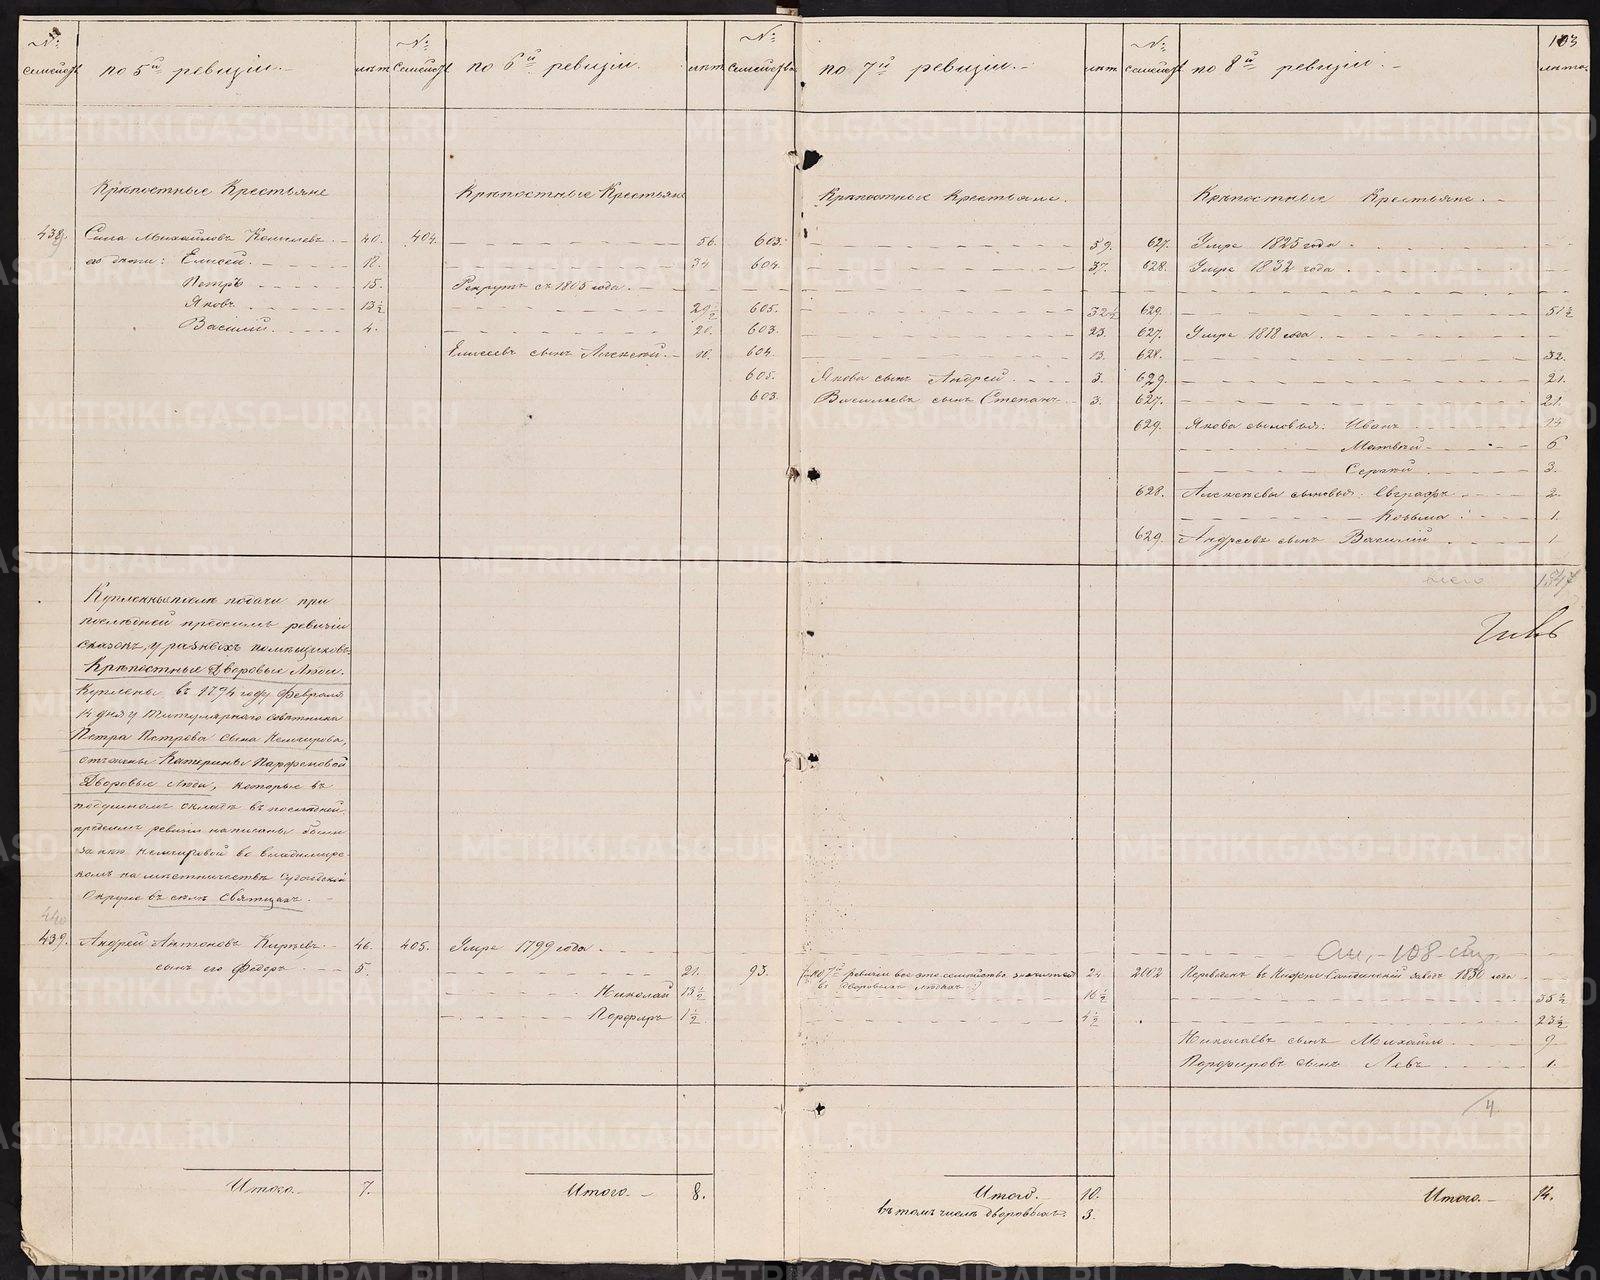 103
№ семейств по 5й ревизіи. лѣта № семейств по 6й ревизіи. лѣта № семейства по 7й ревизіи. лѣта № семейств по 8й ревизіи. лѣта
Крѣпостные Крестьяне Крѣпостные Крестьяне Крѣпостные Крестьяне. Крѣпостные Крестьяне.
438. Сила Михайловъ 40. 404. 56. 603. 59. 627. Умре 1825 года
его дѣти: Елисей. 18. 34 604. 37. 628. Умре 1832 года
Петръ 15. Рекрутъ съ 1805 года.
Яковъ 13½ 29½ 605. 32½ 629. 51½
Василій. 4. 20. 603. 23. 627. Умре 1818 года
Елисеевъ сынъ Алексей. 10. 604. 13. 628. 32.
605. Якова сынъ Андрей 3. 629. 21.
603. Васильевъ сынъ Степанъ 3. 627. 21.
629. Якова сыновья: Иванъ 14
Матвѣй 6
Сергѣй 3.
628. Алексѣева сыновья: Евграфъ 2.
Козьма 1.
629. Андреевъ сынъ Василій 1
всего
Купленные послѣ подачи при
послѣдней предсимъ ревизіи
сказокъ, у разныхъ помѣщиковъ
Крѣпостные Дворовые Люди.
Куплены въ 1794 году февраля
14 дня у Титулярного советника
Петра Петрова сына
Катерины Парфеновой
Дворовые люди, которые въ
подушномъ окладѣ въ послѣдней
предсимъ ревизіи написаны были
за нею во Владимирс-
комъ наместничествѣ Судогодской
Округе въ селѣ Святцахъ.
440
439. Андрей Антоновъ Кирѣевъ 46. 405. Умре 1799 года
сынъ его Федоръ 5. 21. 93. по 7й ревизіи все это семейство значится 24 2002 Переведенъ въ Нижне Салдинской заводъ 1830 года
въ дворовыхъ людяхъ
Николай 13½ 16½ 35½
Порфиръ 1½ 4½ 23½
Николаевъ сынъ Михайло 9
Порфировъ сынъ Левъ 1.
4
Итого 7. Итого 8. Итого. 10. Итого 14.
въ томъ числѣ дворовыхъ. 3.
METRIKI.GASO-URAL.RU